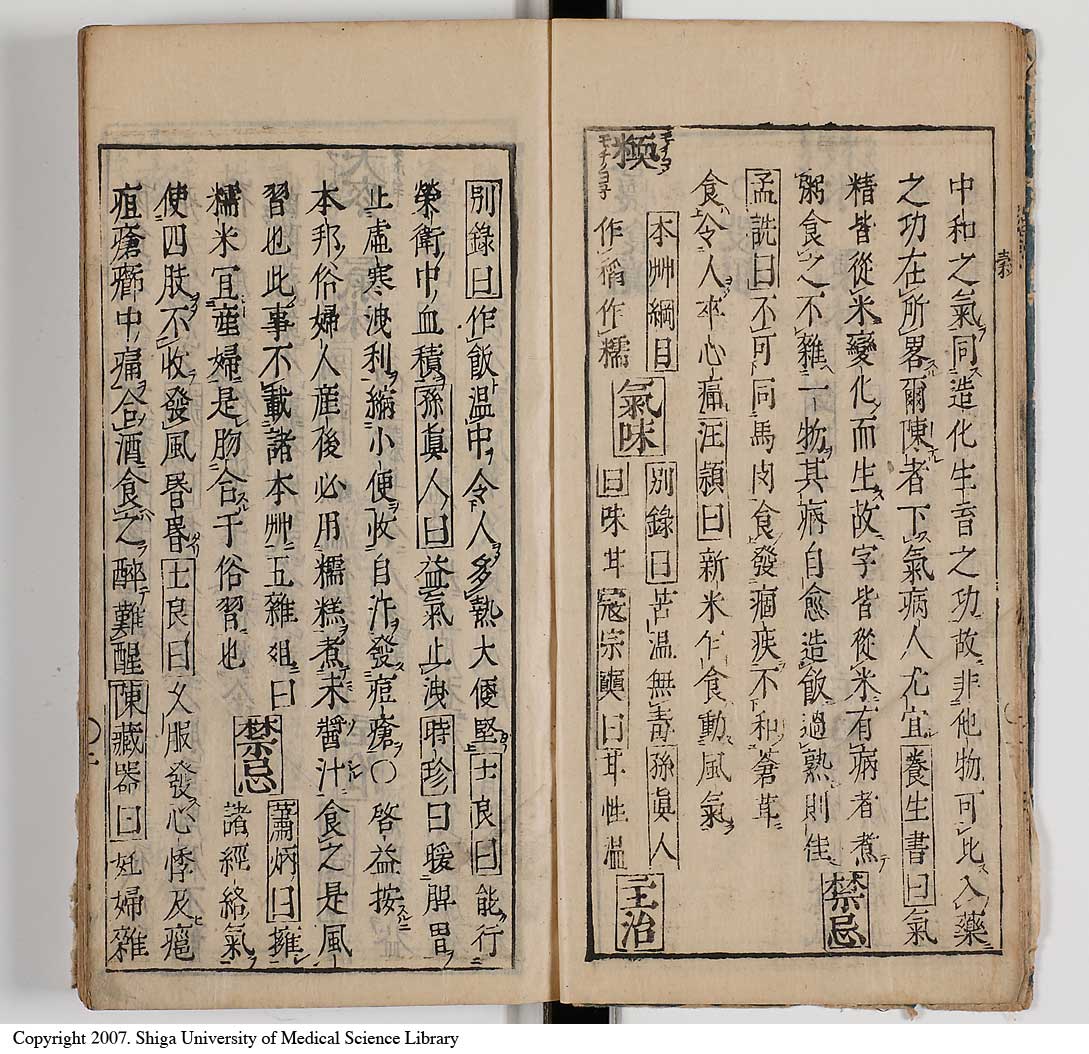 中和之氣同造化生育之功故非他物可比入藥
之功在所畧爾陳者下氣病人尤宜養生書曰氣
精皆從米變化而生故字皆從米有病者煮
粥食之不雜一物其病自愈造飯過熟則佳
禁忌
孟詵曰不可同馬肉食發痼疾不和蒼耳
食令人卒心痛汪頴曰新米乍食動風氣
糯
本艸綱目
作稬作糯
氣味
別錄曰苦温無毒孫眞人
曰味耳冦宗奭曰耳性温
主治
別錄曰作飯温中令人多熱大便堅士良曰能行
榮衛中血積孫眞人曰益氣止洩時珍曰暖脾胃
止虛寒洩利縮小便收自汗發痘瘡〇啓益按
本邦俗婦人産後必用糯糕煮未醬汁食之是風
習也此事不載諸本艸五雜俎曰
糯米宜産婦是脗合于俗習也
禁忌
蕭炳曰擁
諸經絡氣
使四肢不收發風昬昬士良曰久服發心悸及癰
疽瘡癤中痛合酒食之醉難醒陳藏器曰妊婦雜
Copyright 2007. Shiga University of Medical Science Library